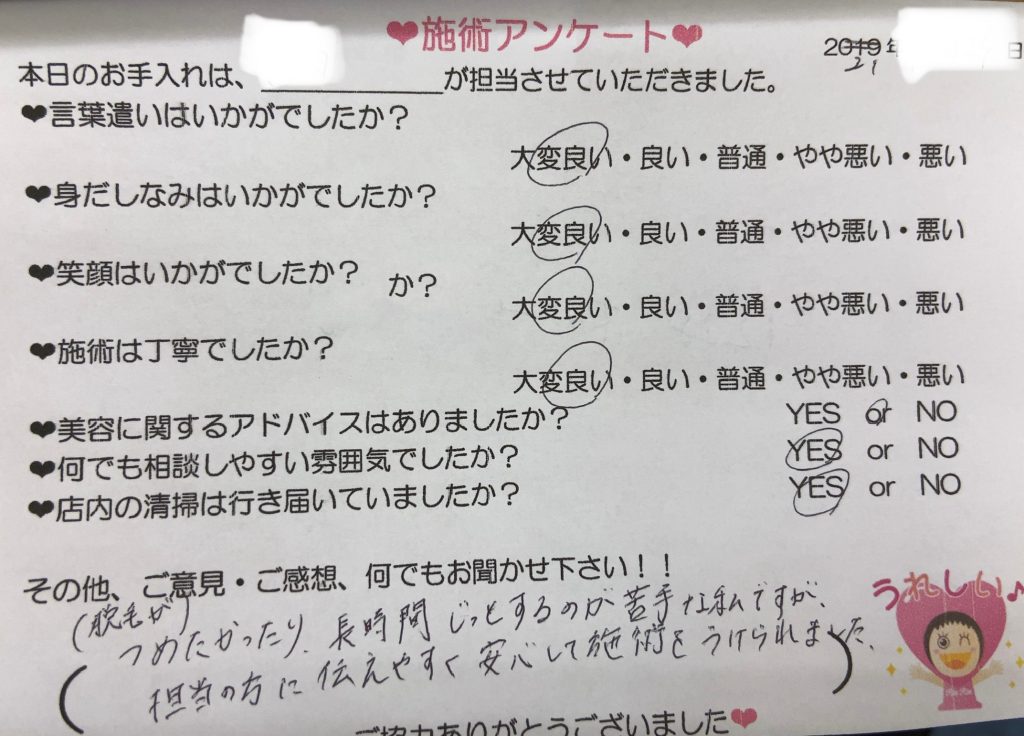 ❤施術アンケート❤
2019年 日
21
本日のお手入れは、 が担当させていただきました。
❤言葉遣いはいかがでしたか？
大変良い・良い・普通・やや悪い・悪い
❤身だしなみはいかがでしたか？
大変良い・良い・普通・やや悪い・悪い
❤笑顔はいかがでしたか？ か？
大変良い・良い・普通・やや悪い・悪い
❤施術は丁寧でしたか？
大変良い・良い・普通・やや悪い・悪い
❤美容に関するアドバイスはありましたか？ YES or NO
❤何でも相談しやすい雰囲気でしたか？ YES or NO
❤店内の清掃は行き届いていましたか？ YES or NO
その他、ご意見・ご感想、何でもお聞かせ下さい！！
うれしい♪
(脱毛が)
つめたかったり、長時間じっとするのが苦手な私ですが、
担当の方に伝えやすく安心して施術をうけられました。
ご協力ありがとうございました❤